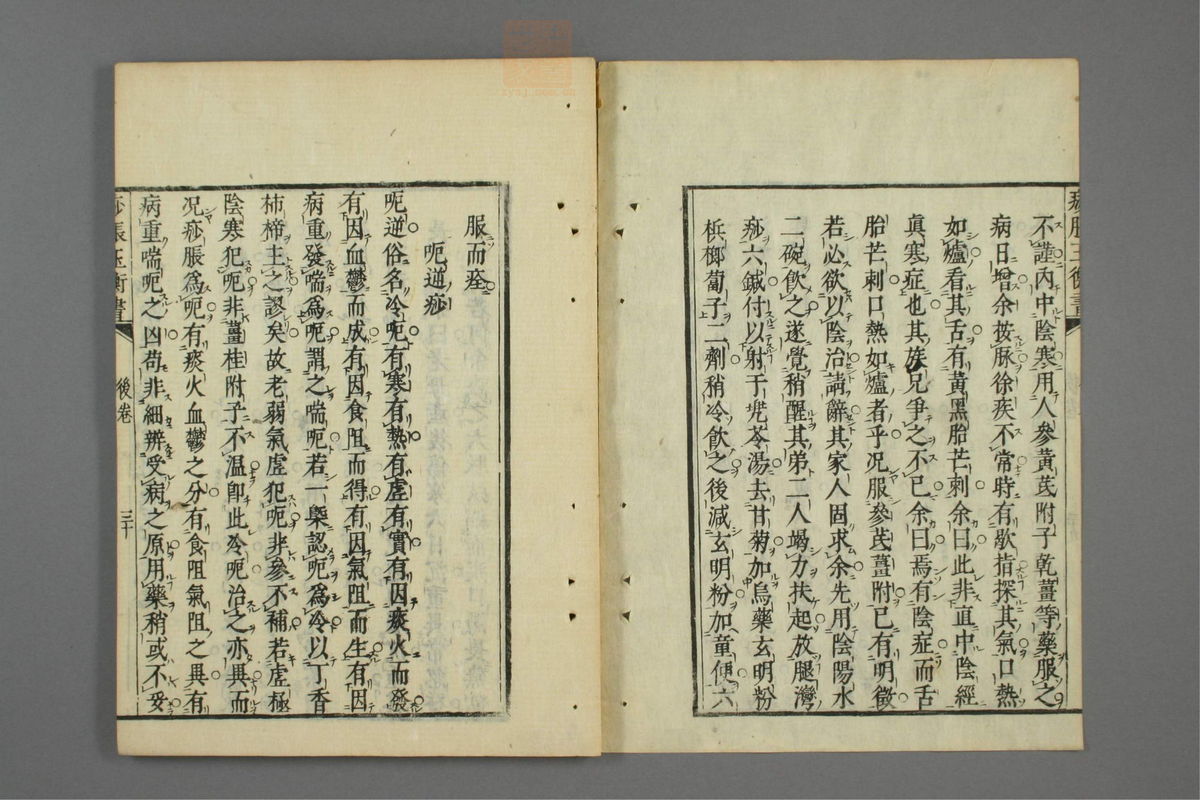 不謹內中陰寒用人參黃芪附子乾薑等藥服之
病日增余按脉徐疾不常時有歇指探其氣口熱
如爐看其舌有黃黑胎芒刺余曰此非直中陰經
眞寒症也其族兄爭之不已余曰焉有陰症而舌
胎芒刺口熱如爐者乎况服參芪薑附已有明徵
若必欲以陰治請辭其家人固求余先用陰陽水
二碗飮之遂覺稍醒其弟二人竭力扶起放腿灣
痧六鍼付以射于兠苓湯去甘菊加烏藥玄明粉
梹榔蔔子二劑稍冷飮之後減玄明粉加童便六
服而痊
呃逆痧
呃逆俗名冷呃有寒有熱有虛有實有因痰火而發
有因血鬱而成有因食阻而得有因氣阻而生有因
病重發喘爲呃謂之喘呃若一槩認呃爲冷以丁香
柿蒂主之謬矣故老弱氣虛犯呃非參不補若虛極
陰寒犯呃非薑桂附子不溫卽此冷呃治之亦異而
况痧脹爲呃有痰火血鬱之分有食阻氣阻之異有
病重喘呃之凶苟非細辨受病之原用藥稍或不妥
痧脹玉衡書
後卷
三十